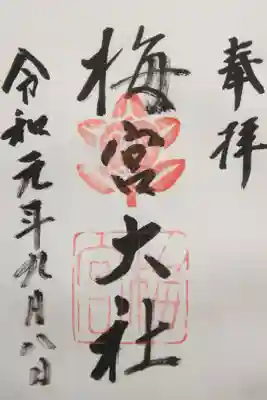 奉拝
梅宮大社
令和元年九月八日
梅宮